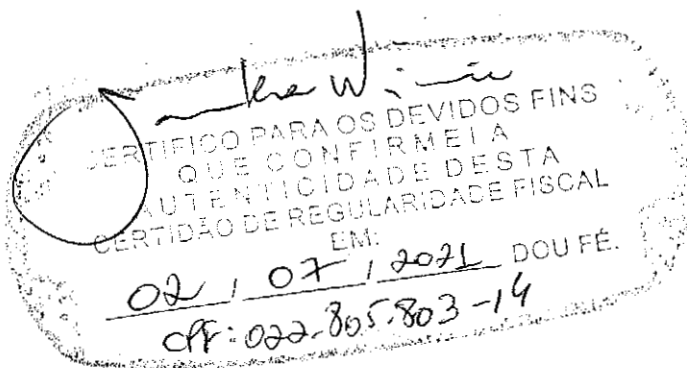 CERTIFICO PARA OS DEVIDOS FINS
QUE CONFIRMEI A
AUTENTICIDADE DESTA
CERTIDÃO DE REGULARIDADE FISCAL
EM:
02 / 07 / 2021 DOU FÉ.
CPF: 022.805.803-14